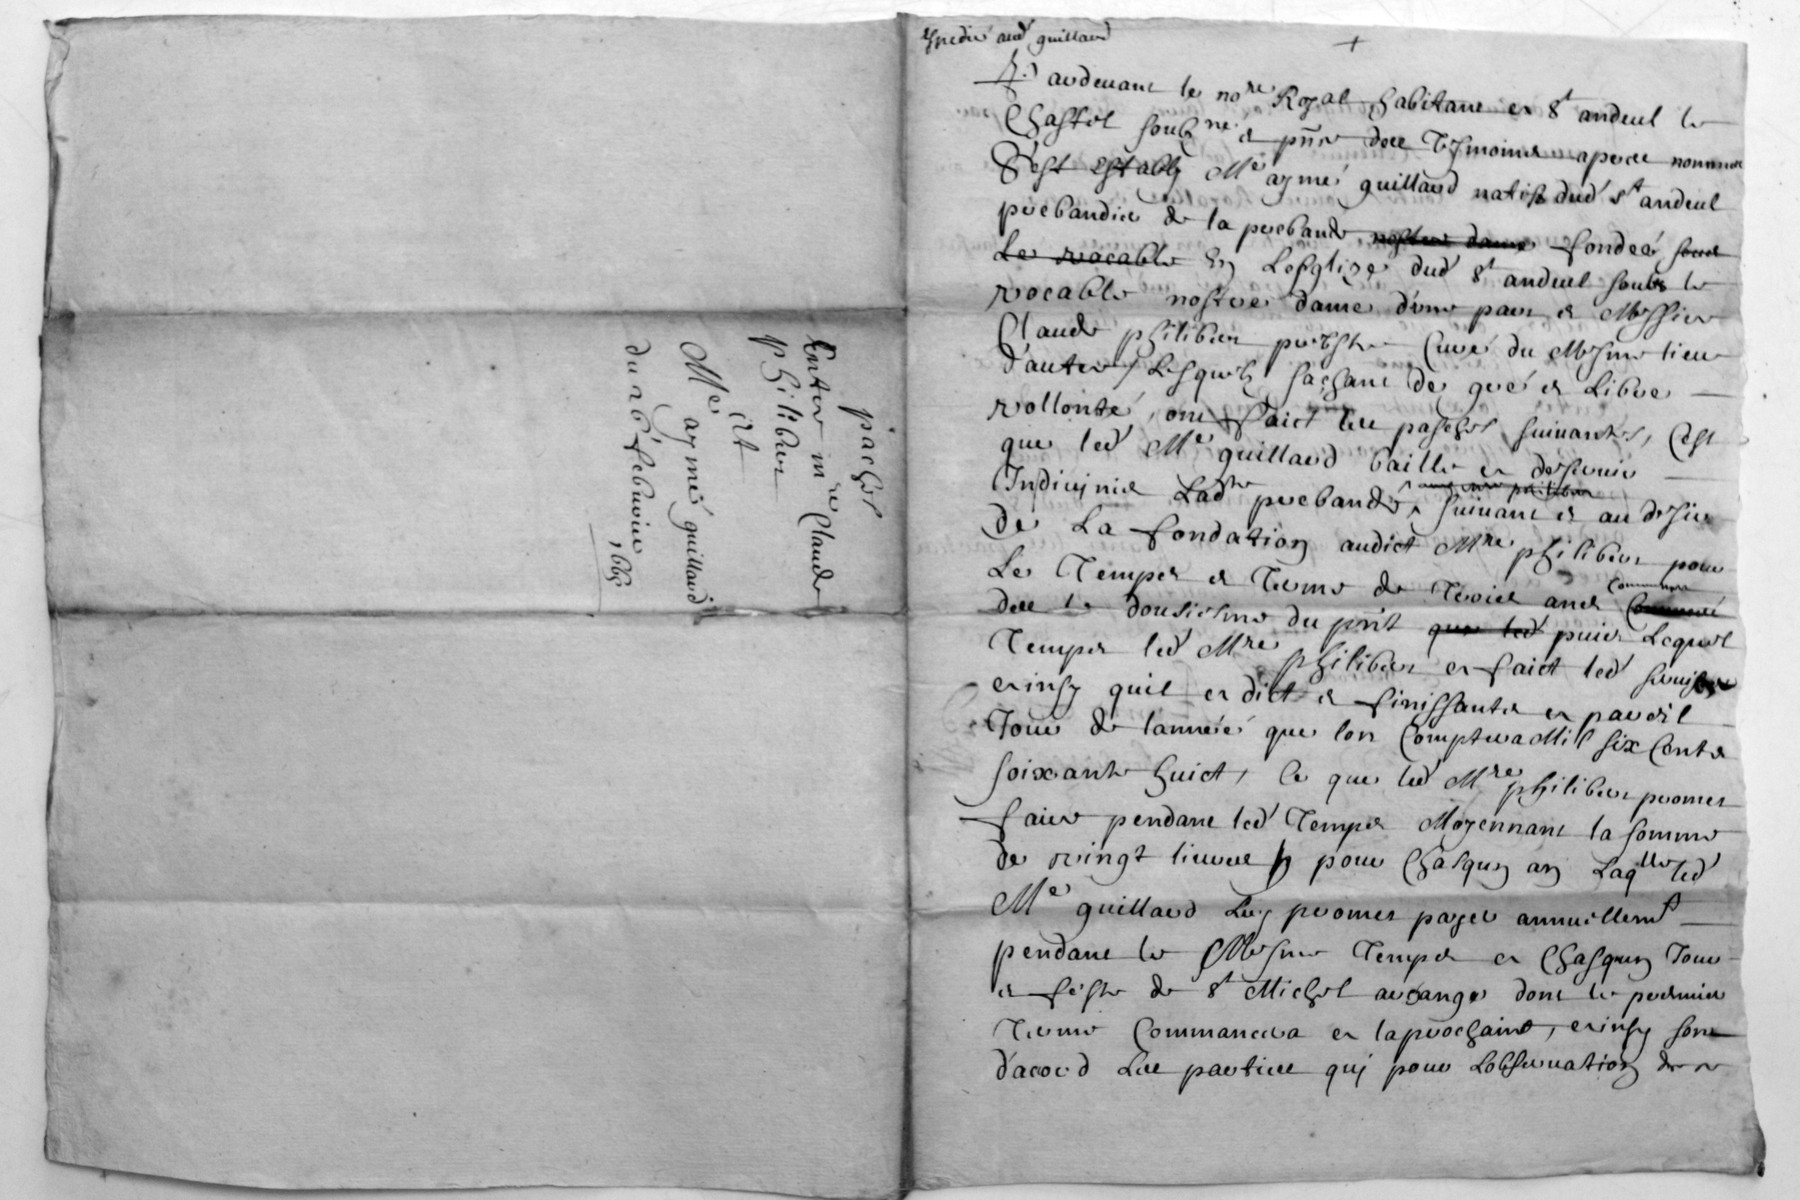 pachés
Entre mre Claude
philibert
et
Me aymé guillard
du 26 febvrier
1665
Expedié aud guillard
+
Pardevant le nore Royal habitant en St andeul le
Chastel soubz.né et pnts des Tesmoins apres nommes
S'est estably Me aymé guillard natif dud St andeul
prebandier de la prebande nostre dame fondeé soubs
Le vocable En Lesglize dud St andeul soubs le
vocable nostre dame d'une part et Messire
Claude philibert prebstre Curé du Mesme lieu
d'autre / Lesquels sachant de gré et Libre
vollonté, ont faict les pachés suivantes, C'est
que led Me guillard baille et desservir
Ladte prebande suivant et au desir
De La fondation audict Mre philibert pour
Le Temps et Terme de Trois ans
des le dousiesme du pnt que led puis Lequel
Temps led Mre philibert en faict led service
einsy quil en dict et finissants en pareil
Jour de l'anneé que lon Comptera Mil six Cents
soixante huict, Ce que led Mre philibert promet
faire pendant led Temps Moyennant la somme
de vingt livres pour Chasqun an Laqlle led
Me guillard Luy promet payer annuellemt
pendant le Mesme Temps en Chasqun Jour
et feste de St Michel archange dont le premier
Terme Commancera en la prochaine, einsy sont
d'acord Les parties quj pour Lobservation de ce